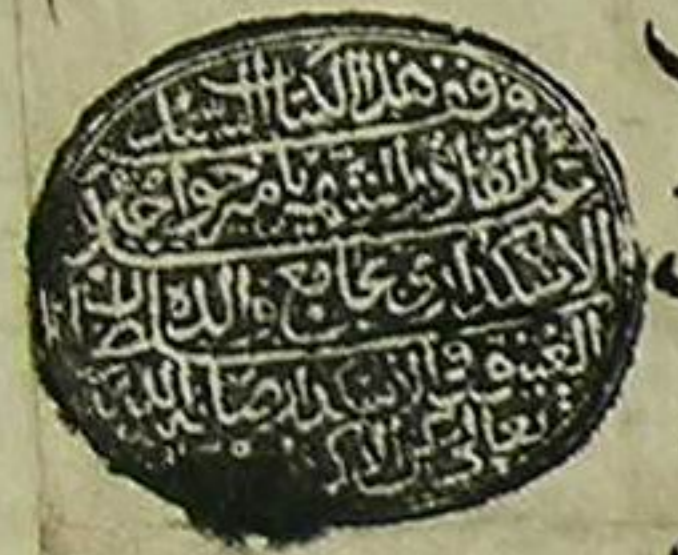 وقف هذا الكتاب السيد
عبد القادر الشهير بامير خواجه
الاسكداري بجامع والدة السلطان
العتيق في الاسكدار صانها الله
تعالى عن الاكدار